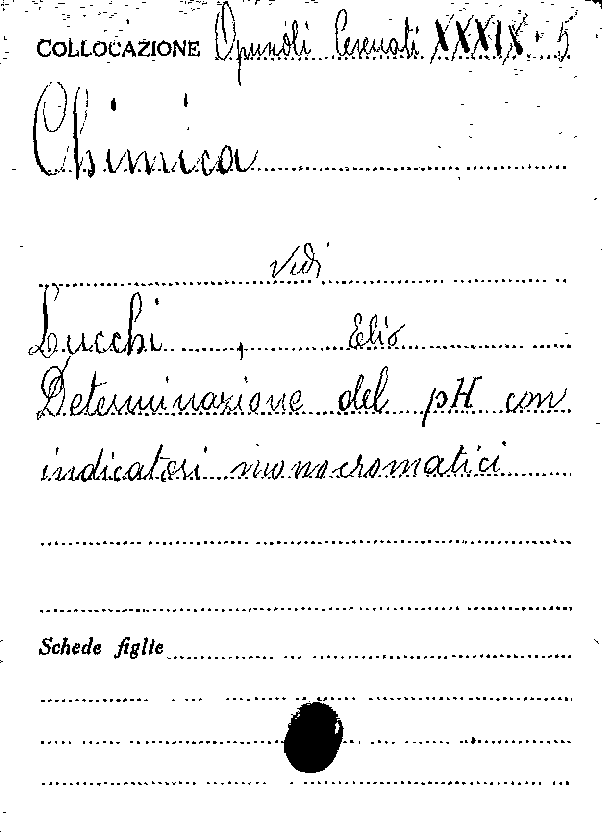 COLLOCAZIONE Opuscoli Cesenati XXXIX. 5
Chimica
Vedi
Lucchi, Elio
Determinazione del pH con
indicatori monocromatici
Schede figlie